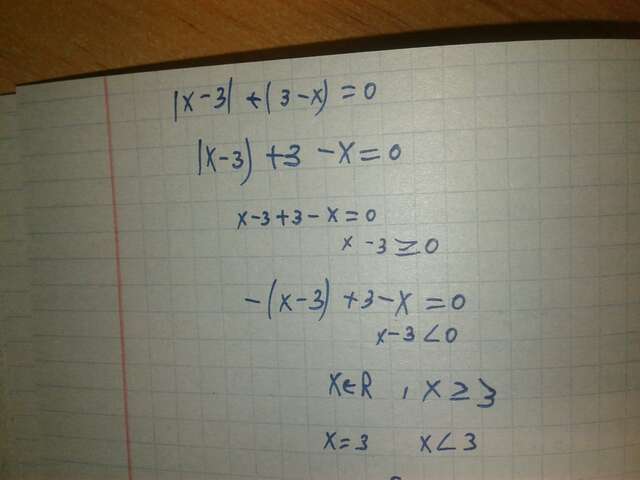 |x-3| +(3-x) = 0
|x-3) +3 -x = 0
x-3+3-x=0
x -3 ≥ 0
-(x-3) +3-x = 0
x-3 < 0
x∈R , x ≥ 3
x=3 x<3